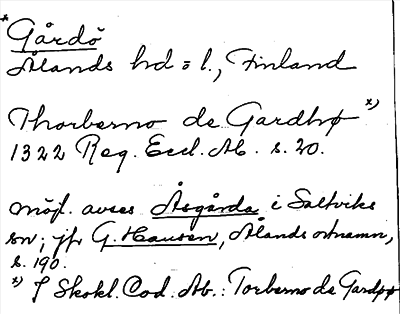 *Gårdö
Ålands hd o l., Finland
Thorberno de Gardhø x)
1322 Reg. Eccl. Ab. s. 20.
Möjl. avses Åsgårda i Saltviks
sn; jfr G. Hausen, Ålands ortnamn,
s. 190.
x) I Skokl. Cod. Ab.: Torberno de Gardpø